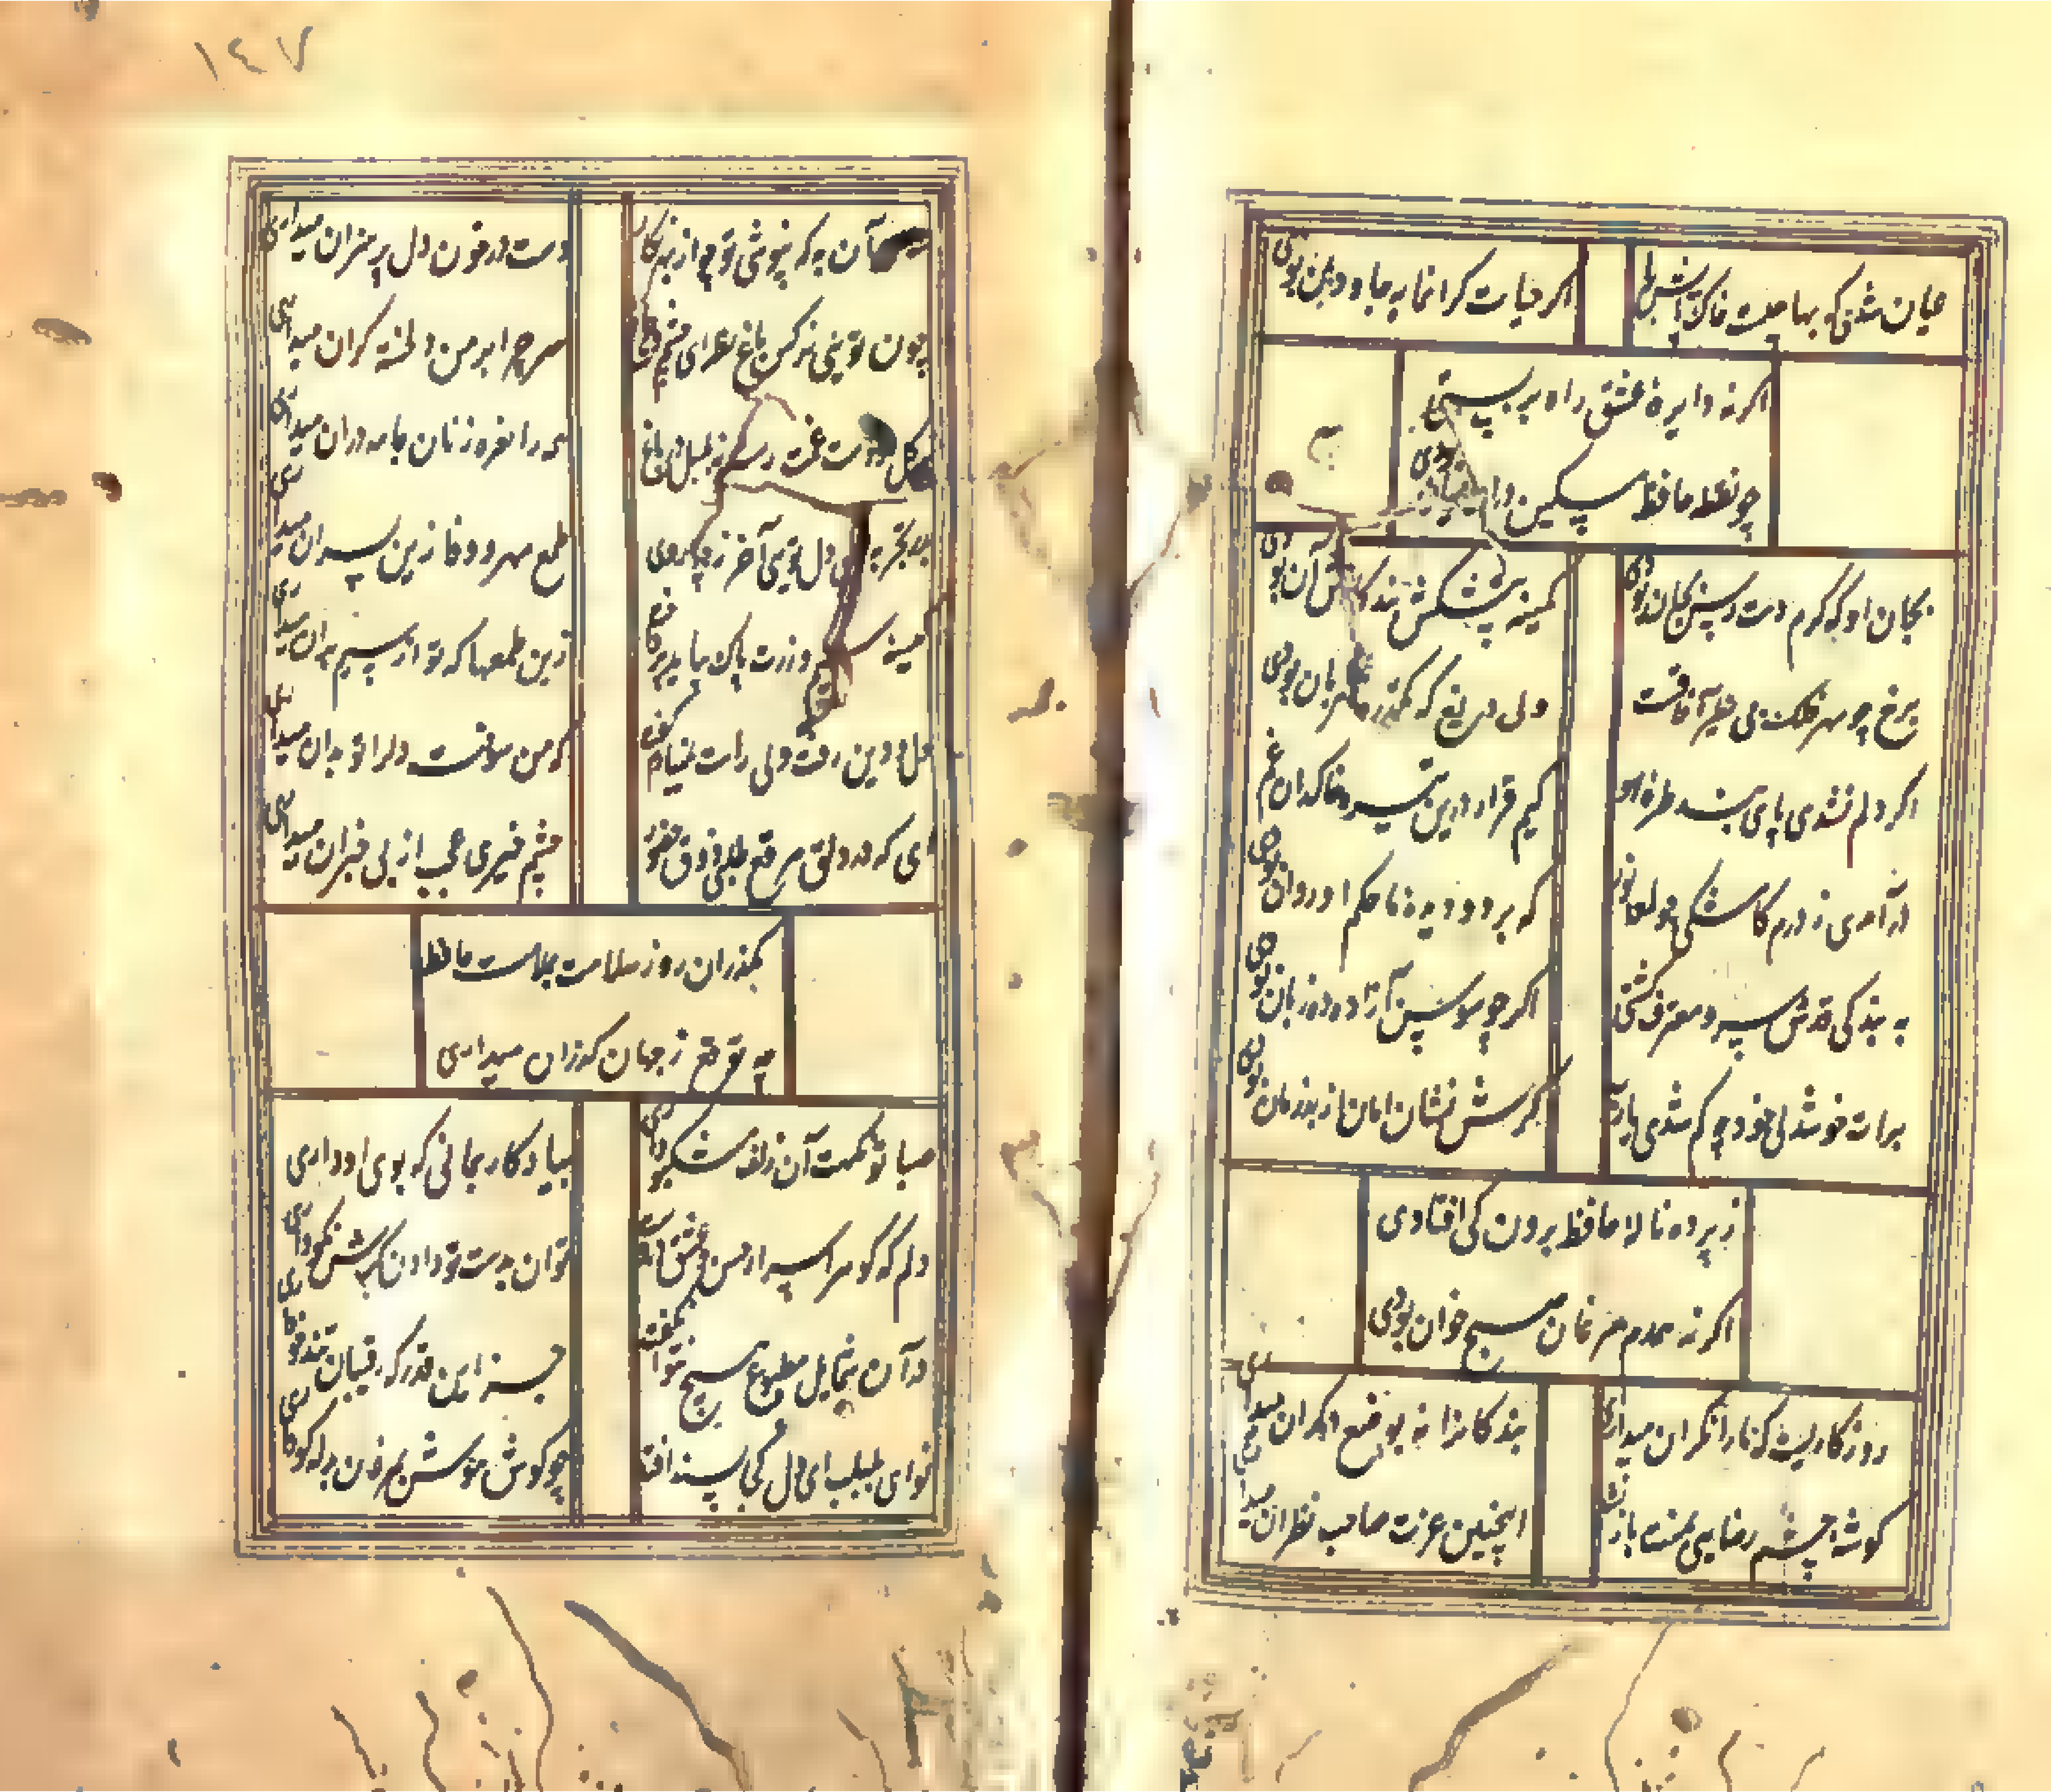 عیان شدی که بها چیست خاک پایش را
اگر حیات گرانمایه جاودان بودی
اگر نه دایره عشق راه بر بستی
چو نقطه حافظ مسکین در میان بودی
بجان او که گرم دست رس بجان بودی
کمینه پیشکش بندگانش آن بودی
برخ چو مهر فلک بی نظیر آفاقست
ولی دریغ که یکذره مهربان بودی
اگر دلم نشدی پای بند طره او
کیم قرار درین تیره خاکدان بودی
درآمدی ز درم کاشکی چو لمعه نور
که بر دو دیده ما حکم او روان بودی
به بندگی قدش سرو معترف گشتی
اگر چو سوسن آزاده ده زبان بودی
برات خوشدلی خود چه کم شدی یارب
گرش نشان امان از بد زمان بودی
ز پرده ناله حافظ برون کی افتادی
اگر نه همدم مرغان صبح خوان بودی
روزگاریست که ما را نگران میداری
بندگانرا نه بوضع دگران میداری
گوشه چشم رضایی بمنت باز نشد
اینچنین عزت صاحب نظران میداری
۱٤۷
آن به که بپوشی تو چو از بهر نگار
دست در خون دل پر هنران میداری
چون تویی نرگس باغ نظر ای چشم و چراغ
سر چرا بر من دلخسته گران میداری
گل دست غمت رست نه بلبل در باغ
همه را نعره زنان جامه دران میداری
پدر تجربه ای دل تویی آخر ز چه روی
طمع مهر و وفا زین پسران میداری
کیسه سیم و زرت پاک بباید پرداخت
زین طمعها که تو از سیم بران میداری
دل و دین رفت ولی راست نیارم گفت
که من سوخته دل را تو بدان میداری
ای که در دلق مرقع طلبی ذوق حضور
چشم خیری عجب از بی خبران میداری
مگذران روز سلامت بملامت حافظ
چه توقع ز جهان گذران میداری
صبا تو نکهت آن زلف مشکبو داری
بیادگار بمانی که بوی او داری
دلم که گوهر اسرار حسن و عشق دروست
توان بدست تو دادن گرش نکو داری
در آن شمایل مطبوع هیچ نتوان گفت
جز این قدر که رقیبان تندخو داری
نوای بلبلت ای گل کجا پسند افتد
چو گوش هوش بمرغان هرزه گو داری